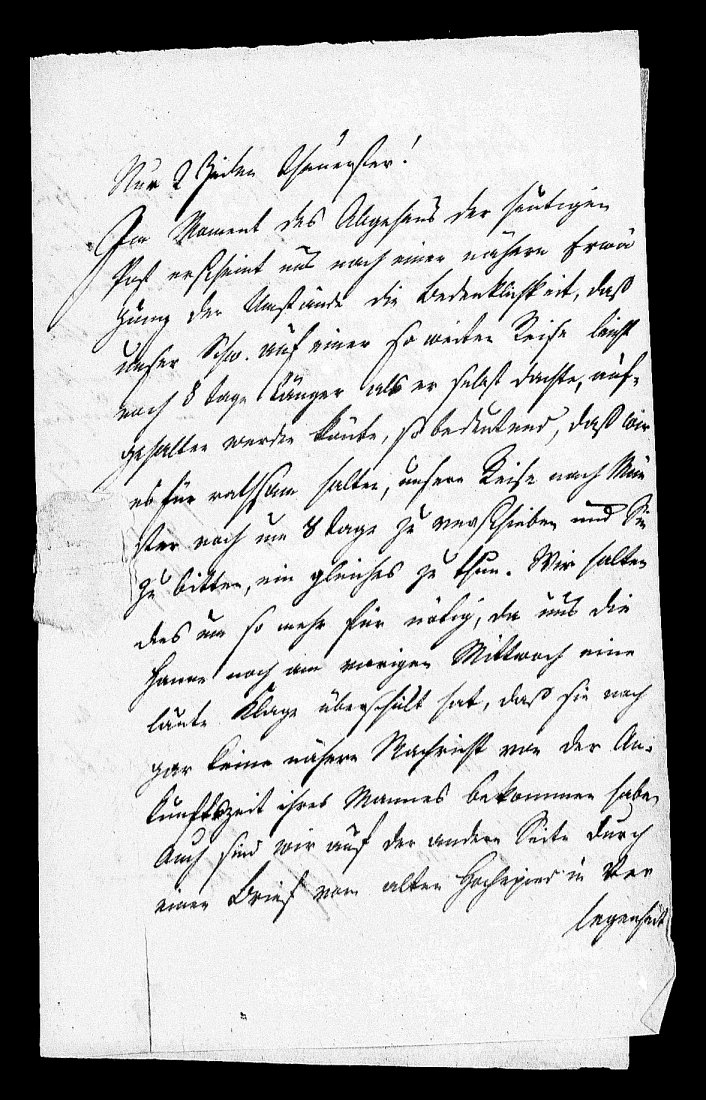 Nur 2 Zeilen Theuerster!
Im Moment des Abgehens der heutigen
Post erscheint uns nach einer nähern Erwä
gung der Umstände die Bedenklichkeit, daß
unser Schw. auf einer so weiten Reise leicht
noch 8 Tage länger als er selbst dachte, auf-
gehalten werden könte, so bedeutend, daß wir
es für rathsam halten, unsere Reise nach Mün
ster noch um 8 Tage zu verschieben und Sie
zu bitten, ein gleiches zu thun. Wir halten
dies um so mehr für nötig, da uns die
Hanne noch am vorigen Mittwoch eine
laute Klage überschickt hat, daß sie noch
gar keine nähere Nachricht von der An-
kunftszeit ihres Mannes bekommen habe.
Auch sind wir auf der andern Seite durch
einen Brief vom alten in Ver
legenheit